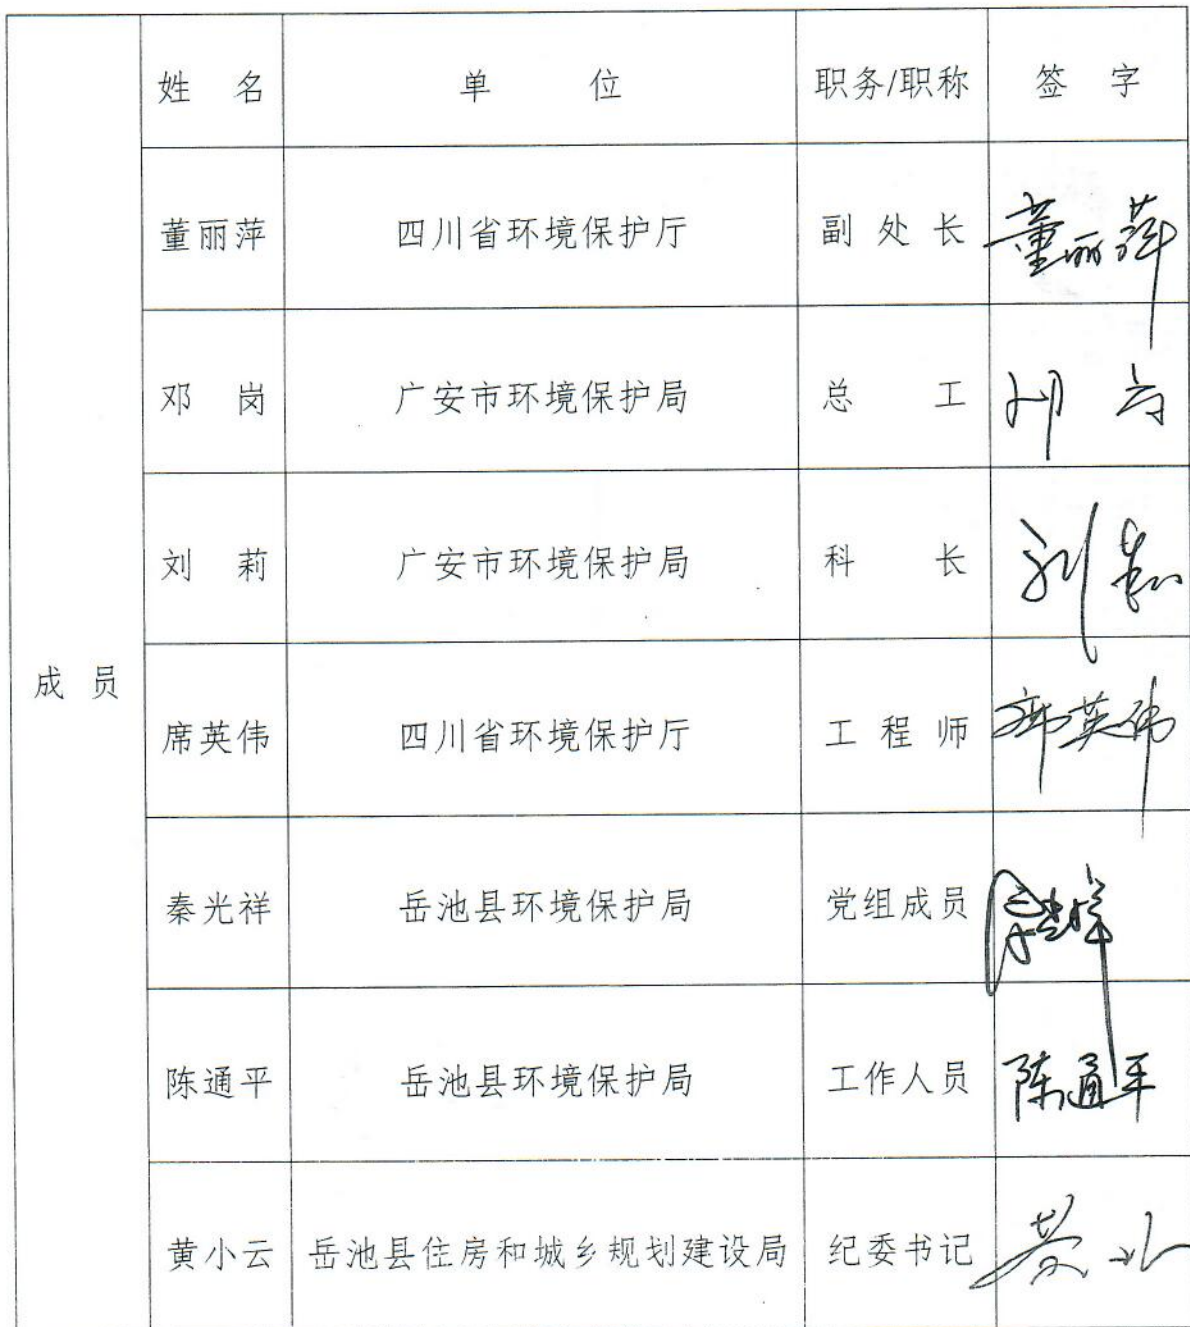 姓 名 单 位 职务/职称 签 字
董丽萍 四川省环境保护厅 副处长 董丽萍
邓 岗 广安市环境保护局 总 工
刘 莉 广安市环境保护局 科 长 刘莉
成 员
席英伟 四川省环境保护厅 工程师 席英伟
秦光祥 岳池县环境保护局 党组成员
陈通平 岳池县环境保护局 工作人员 陈通平
黄小云 岳池县住房和城乡规划建设局 纪委书记